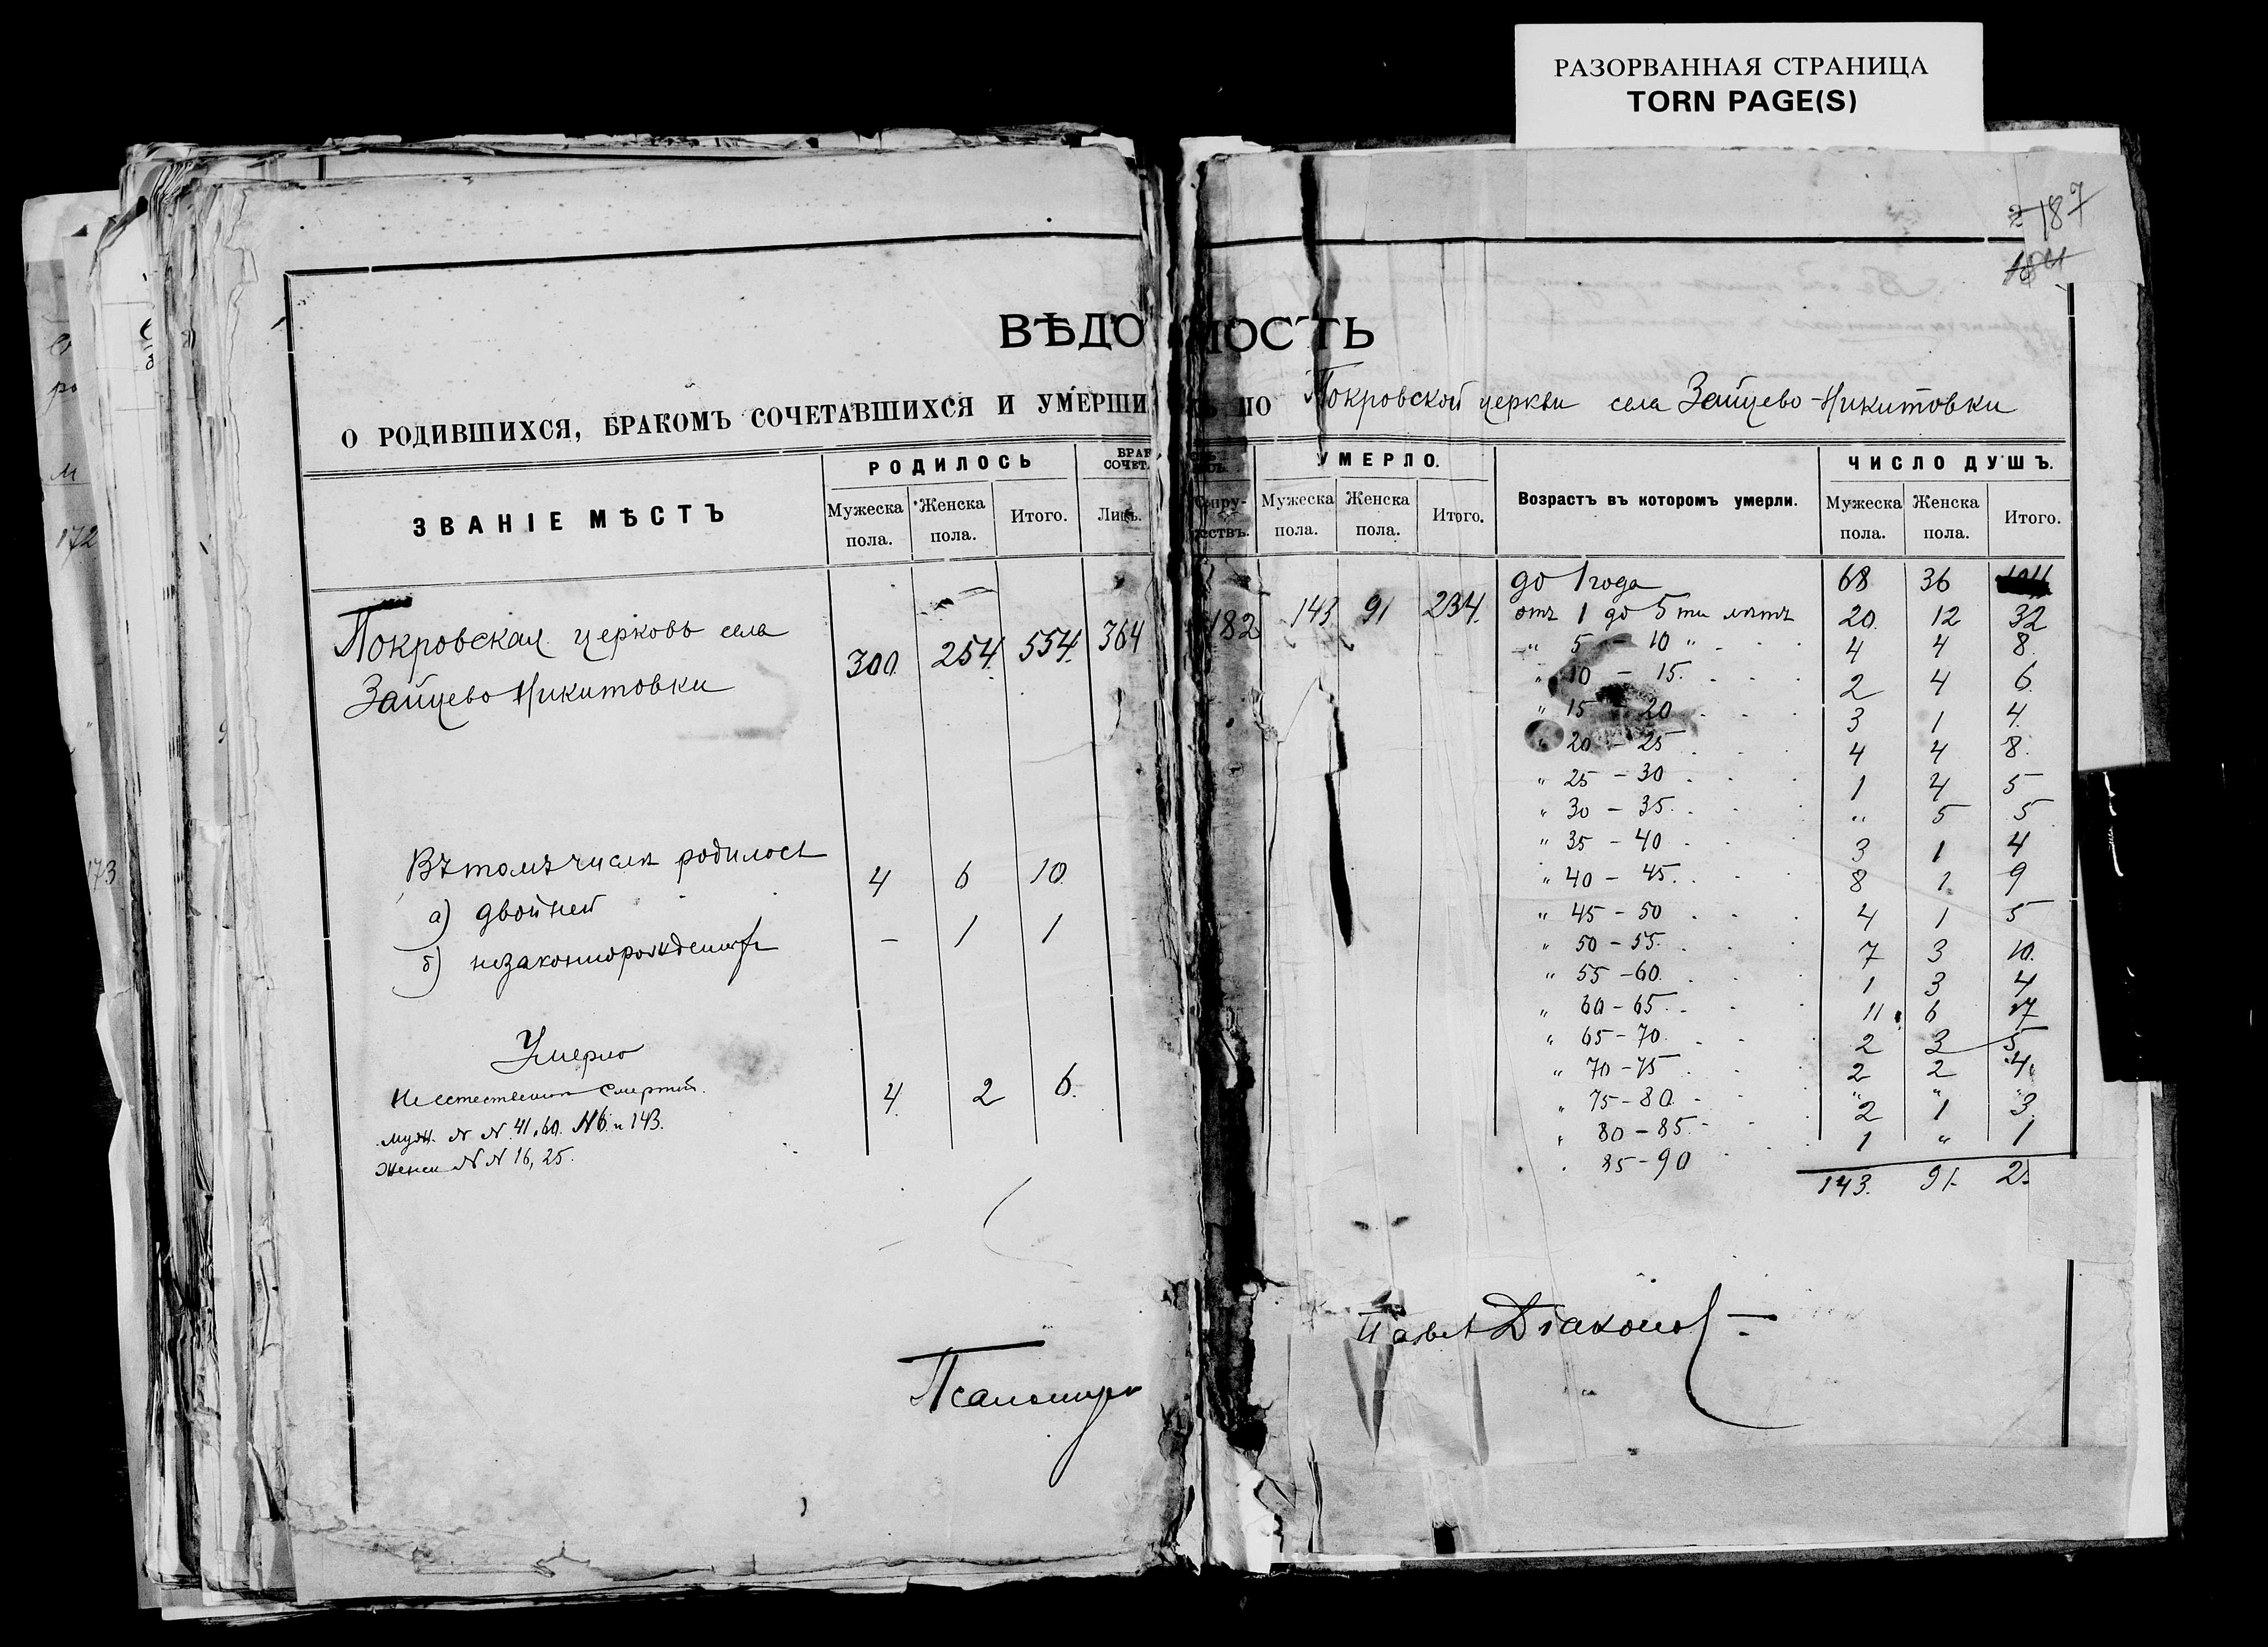 РАЗОРВАННАЯ СТРАНИЦА
TORN PAGE(S)
187
184
ВѢДОМОСТЬ
О РОДИВШИХСЯ, БРАКОМЪ СОЧЕТАВШИХСЯ И УМЕРШИХЪ ПО Покровской церкви села Зайцево-Никитовки
ЗВАНІЕ МѢСТЪ
РОДИЛОСЬ
Мужеска пола. Женска пола. Итого.
БРАК СОЧЕТ.
Лицъ. Супру-жествъ.
УМЕРЛО.
Мужеска пола. Женска пола. Итого.
Возрастъ въ которомъ умерли.
ЧИСЛО ДУШЪ.
Мужеска пола. Женска пола. Итого.
Покровская церковь села
Зайцево Никитовки
300 254. 554. 364 182 143 91 234.
Въ томъ числѣ родилось
а) двойней 4 6 10
б) незаконнорожденных - 1 1
Умерло
Неестественной смертью. 4 2 6.
муж. N N 41, 60. 116 и 143.
женск N N 16, 25.
до 1 года 68 36 104
отъ 1 до 5 ти лѣтъ 20. 12 32
" 5 - 10 " 4 4 8.
" 10 - 15. 2 4 6.
" 15 - 20 3 1 4.
" 20 - 25 4 4 8.
" 25 - 30 1 4 5
" 30 - 35. " 5 5
" 35 - 40 3 1 4
" 40 - 45. 8 1. 9
" 45 - 50 4 1 5
" 50 - 55. 7 3 10.
" 55 - 60. 1 3 4
" 60 - 65 11 6 17
" 65 - 70. 2 3 5
" 70 - 75 2 2 4.
" 75 - 80. " " "
" 80 - 85. 2 1 3.
85 - 90 1 " 1
143. 91. 2
Псаломщик Павел Дiаконов
172
173